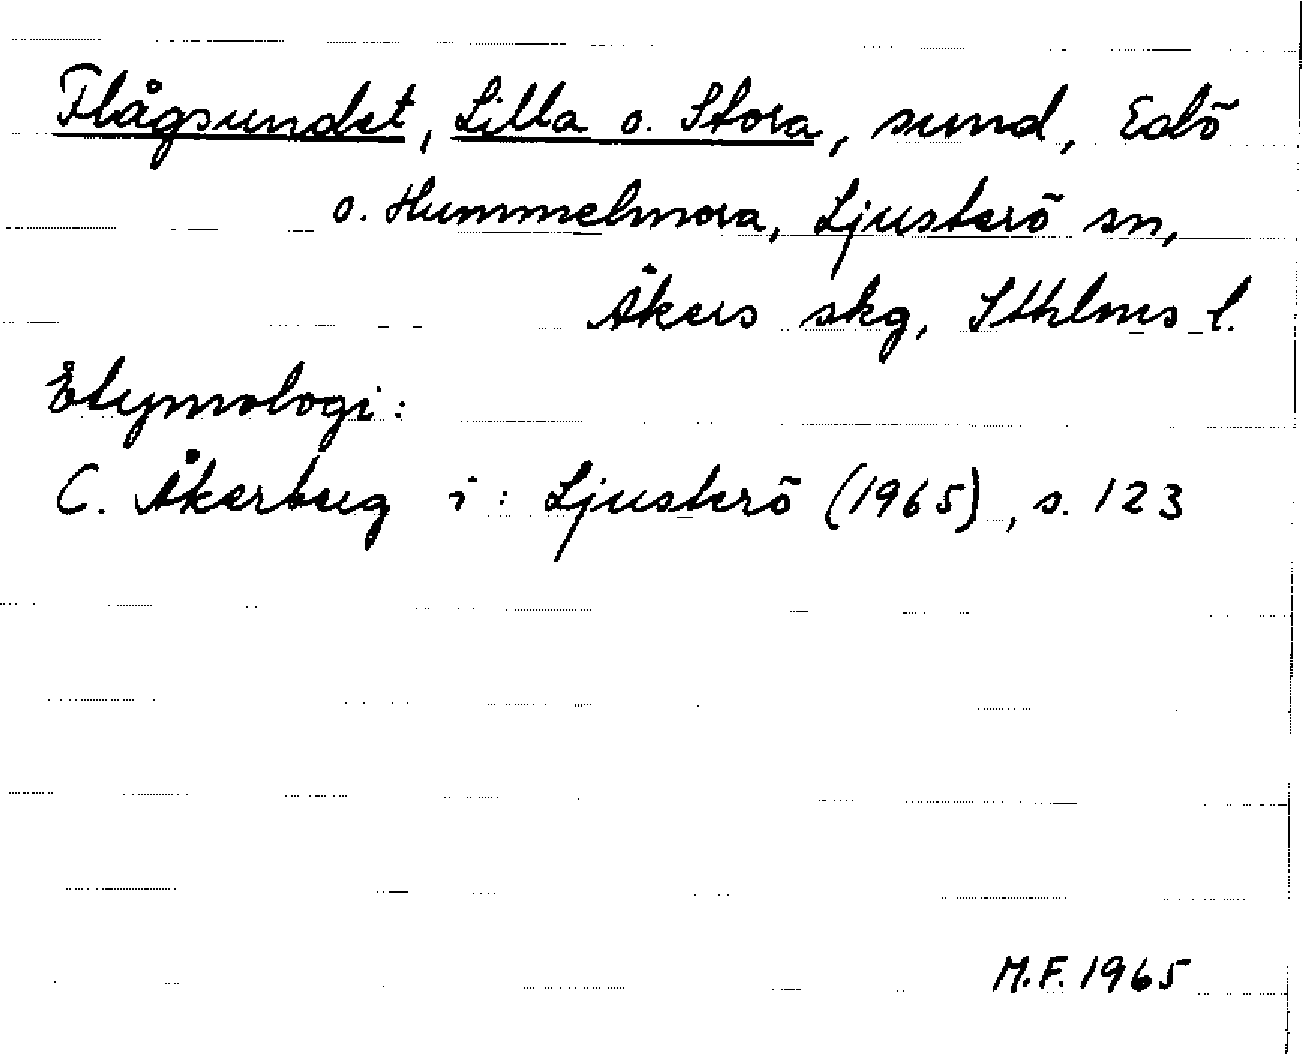 Flågsundet, Lilla o. Stora, sund, Edö
o. Hummelmora, Ljusterö sn,
Åkers skg, Sthlms l.
Etymologi:
C. Åkerberg i: Ljusterö (1965), s. 123
M.F. 1965